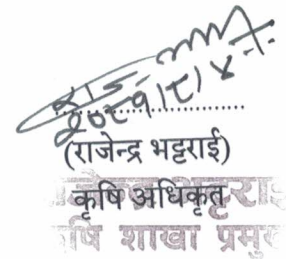 २०८१।८।४
....................
(राजेन्द्र भट्टराई)
कृषि अधिकृत
कृषि शाखा प्रमुख